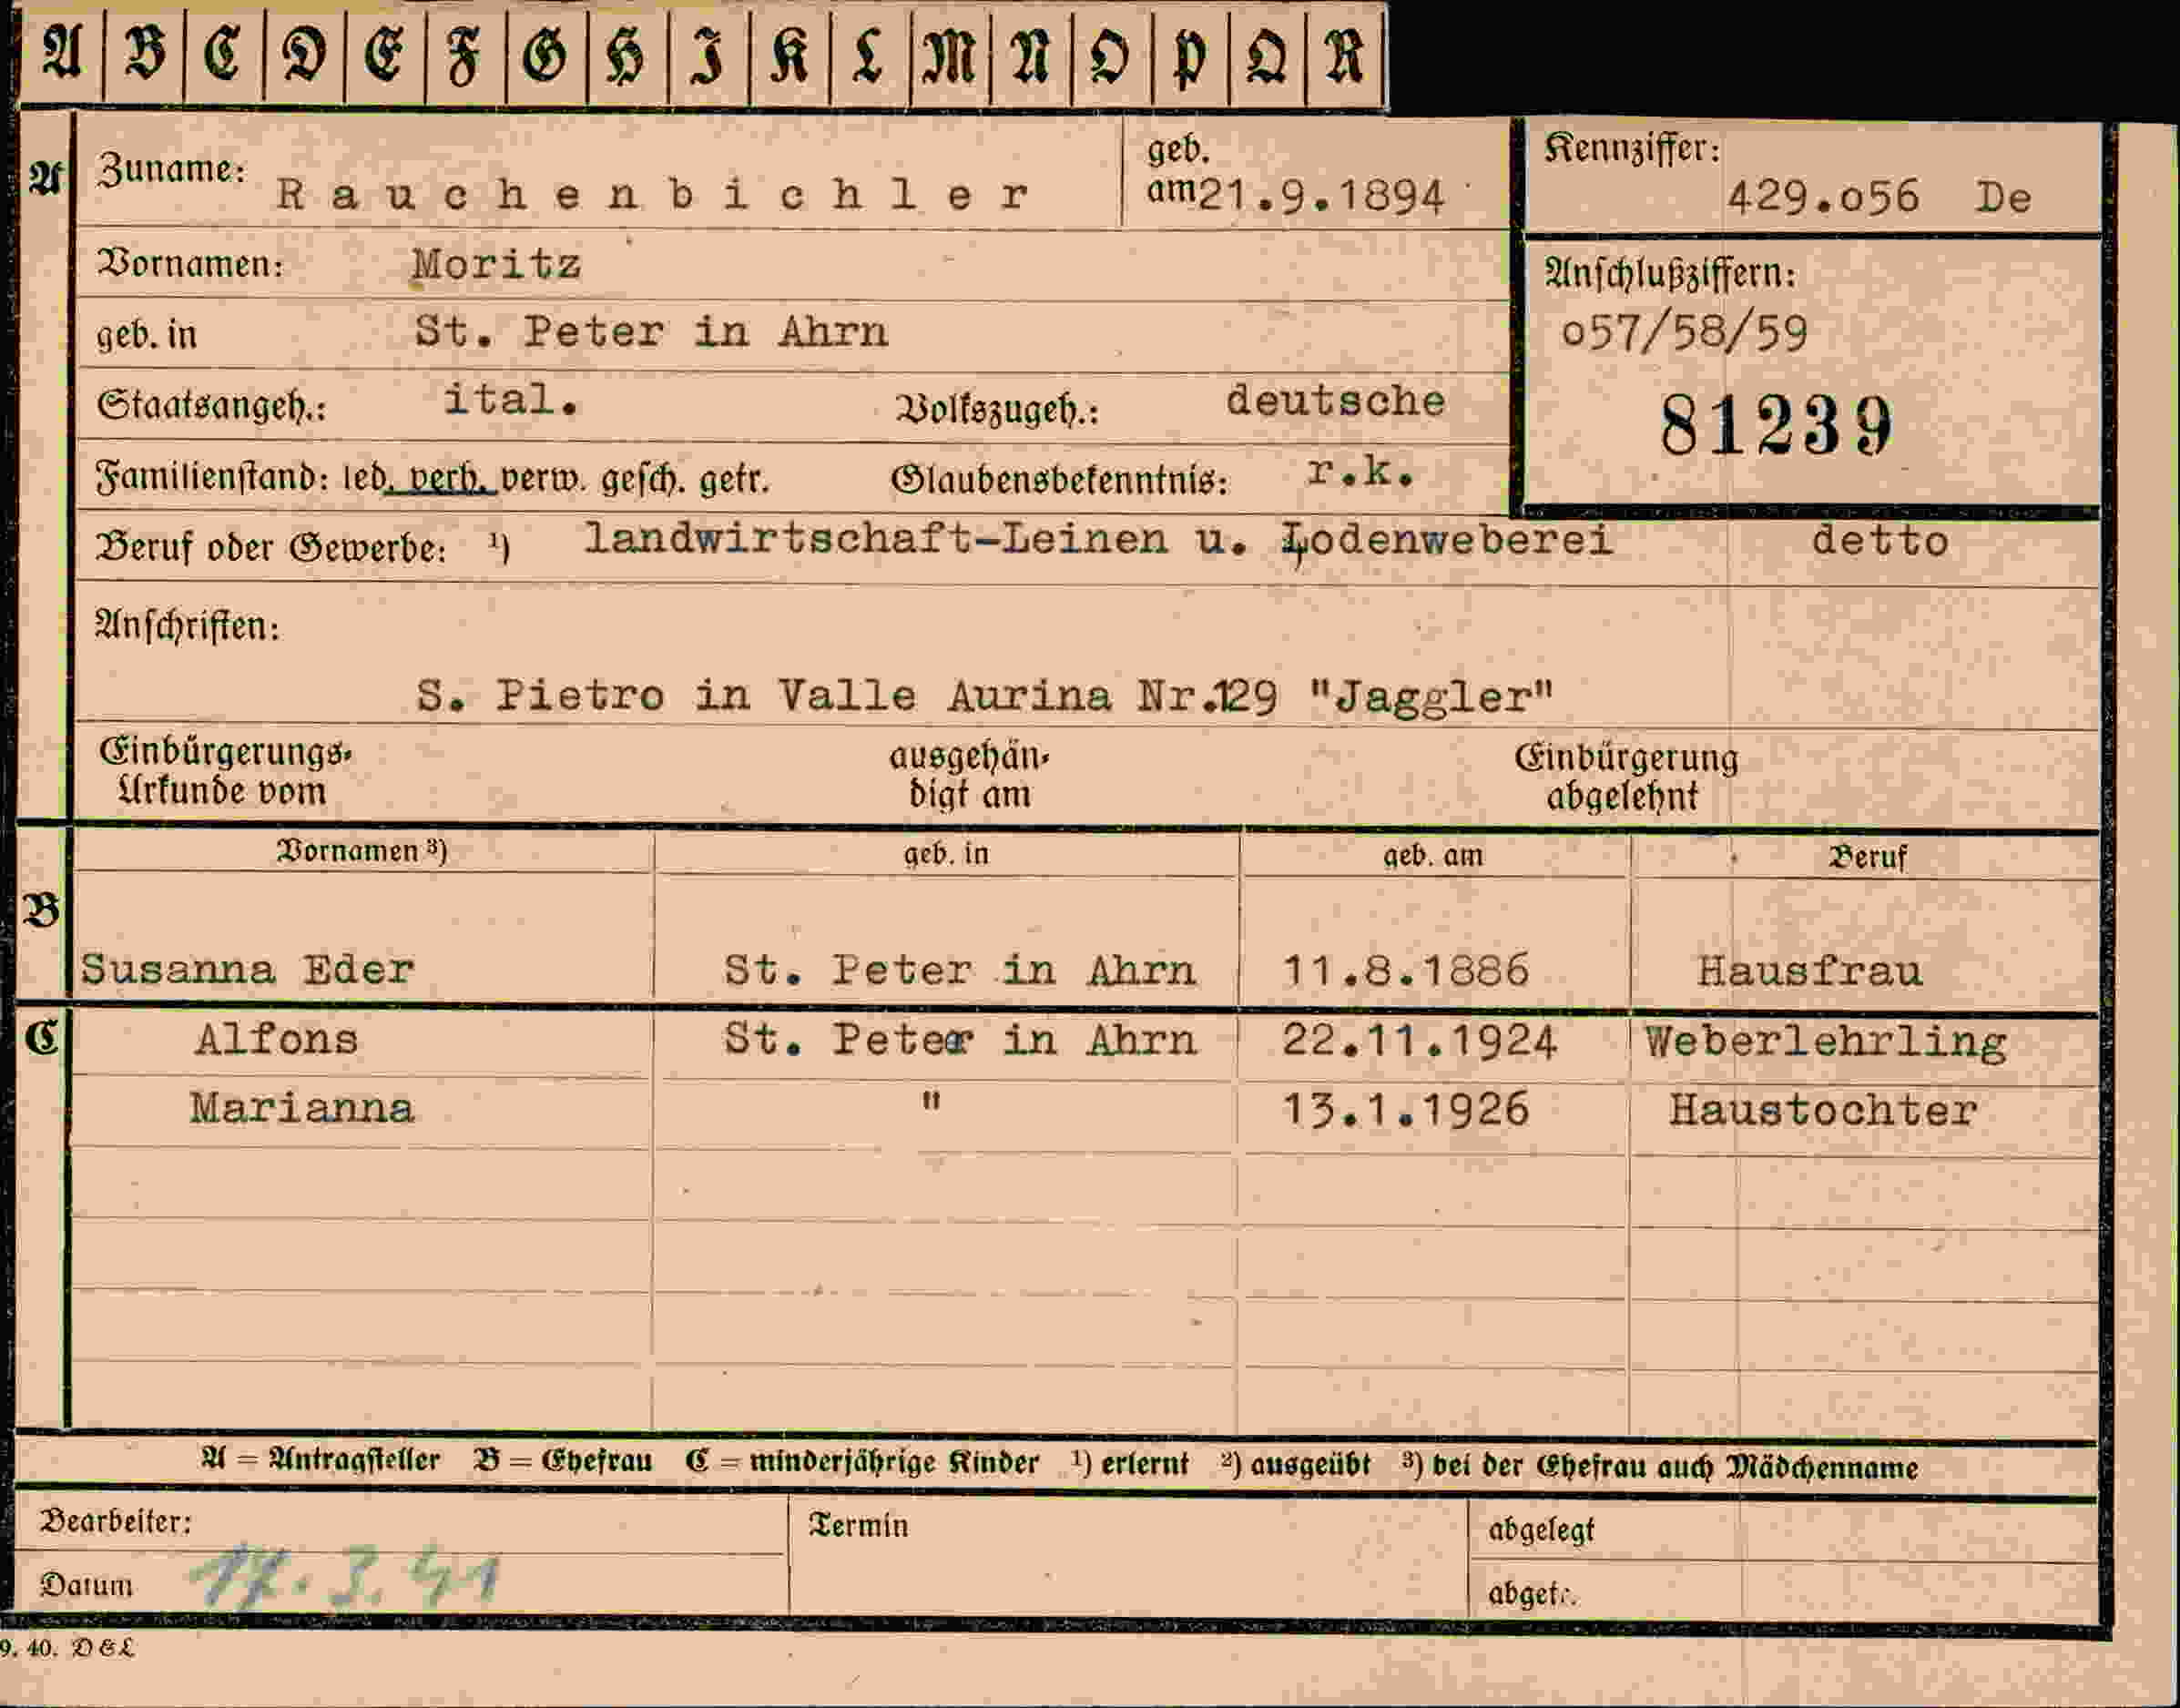 A B C D E F G H I K L M N O P Q R
A Zuname: Rauchenbichler geb. am 21.9.1894 Kennziffer: 429.o56 De
Vornamen: Moritz Anschlußziffern:
geb. in St. Peter in Ahrn o57/58/59
Staatsangeh.: ital. Volkszugeh.: deutsche 81239
Familienstand: led. verh. verw. gesch. getr. Glaubensbekenntnis: r.k.
Beruf oder Gewerbe: ¹) landwirtschaft-Leinen u. Lodenweberei detto
Anschriften:
S. Pietro in Valle Aurina Nr.129 "Jaggler"
Einbürgerungs- ausgehän- Einbürgerung
Urkunde vom digt am abgelehnt
Vornamen ³) geb. in geb. am Beruf
B
Susanna Eder St. Peter in Ahrn 11.8.1886 Hausfrau
C Alfons St. Peter in Ahrn 22.11.1924 Weberlehrling
Marianna " 13.1.1926 Haustochter
A = Antragsteller B = Ehefrau C = minderjährige Kinder ¹) erlernt ²) ausgeübt ³) bei der Ehefrau auch Mädchenname
Bearbeiter: Termin abgelegt
Datum 17.3.41 abget.
9. 40. D&L